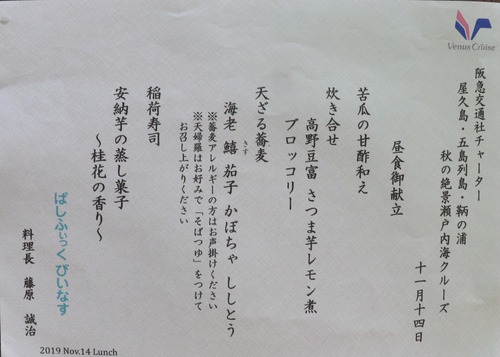 Venus Cruise
阪急交通社チャーター
屋久島・五島列島・鞆の浦
秋の絶景瀬戸内海クルーズ
十一月十四日
昼食御献立
苦瓜の甘酢和え
炊き合せ
高野豆富 さつま芋レモン煮
ブロッコリー
天ざる蕎麦
海老 鱚 茄子 かぼちゃ ししとう
きす
※蕎麦アレルギーの方はお声掛けください
※天婦羅はお好みで「そばつゆ」をつけて
お召し上がりください
稲荷寿司
安納芋の蒸し菓子
～桂花の香り～
ぱしふぃっく びいなす
料理長 藤原 誠治
2019 Nov.14 Lunch